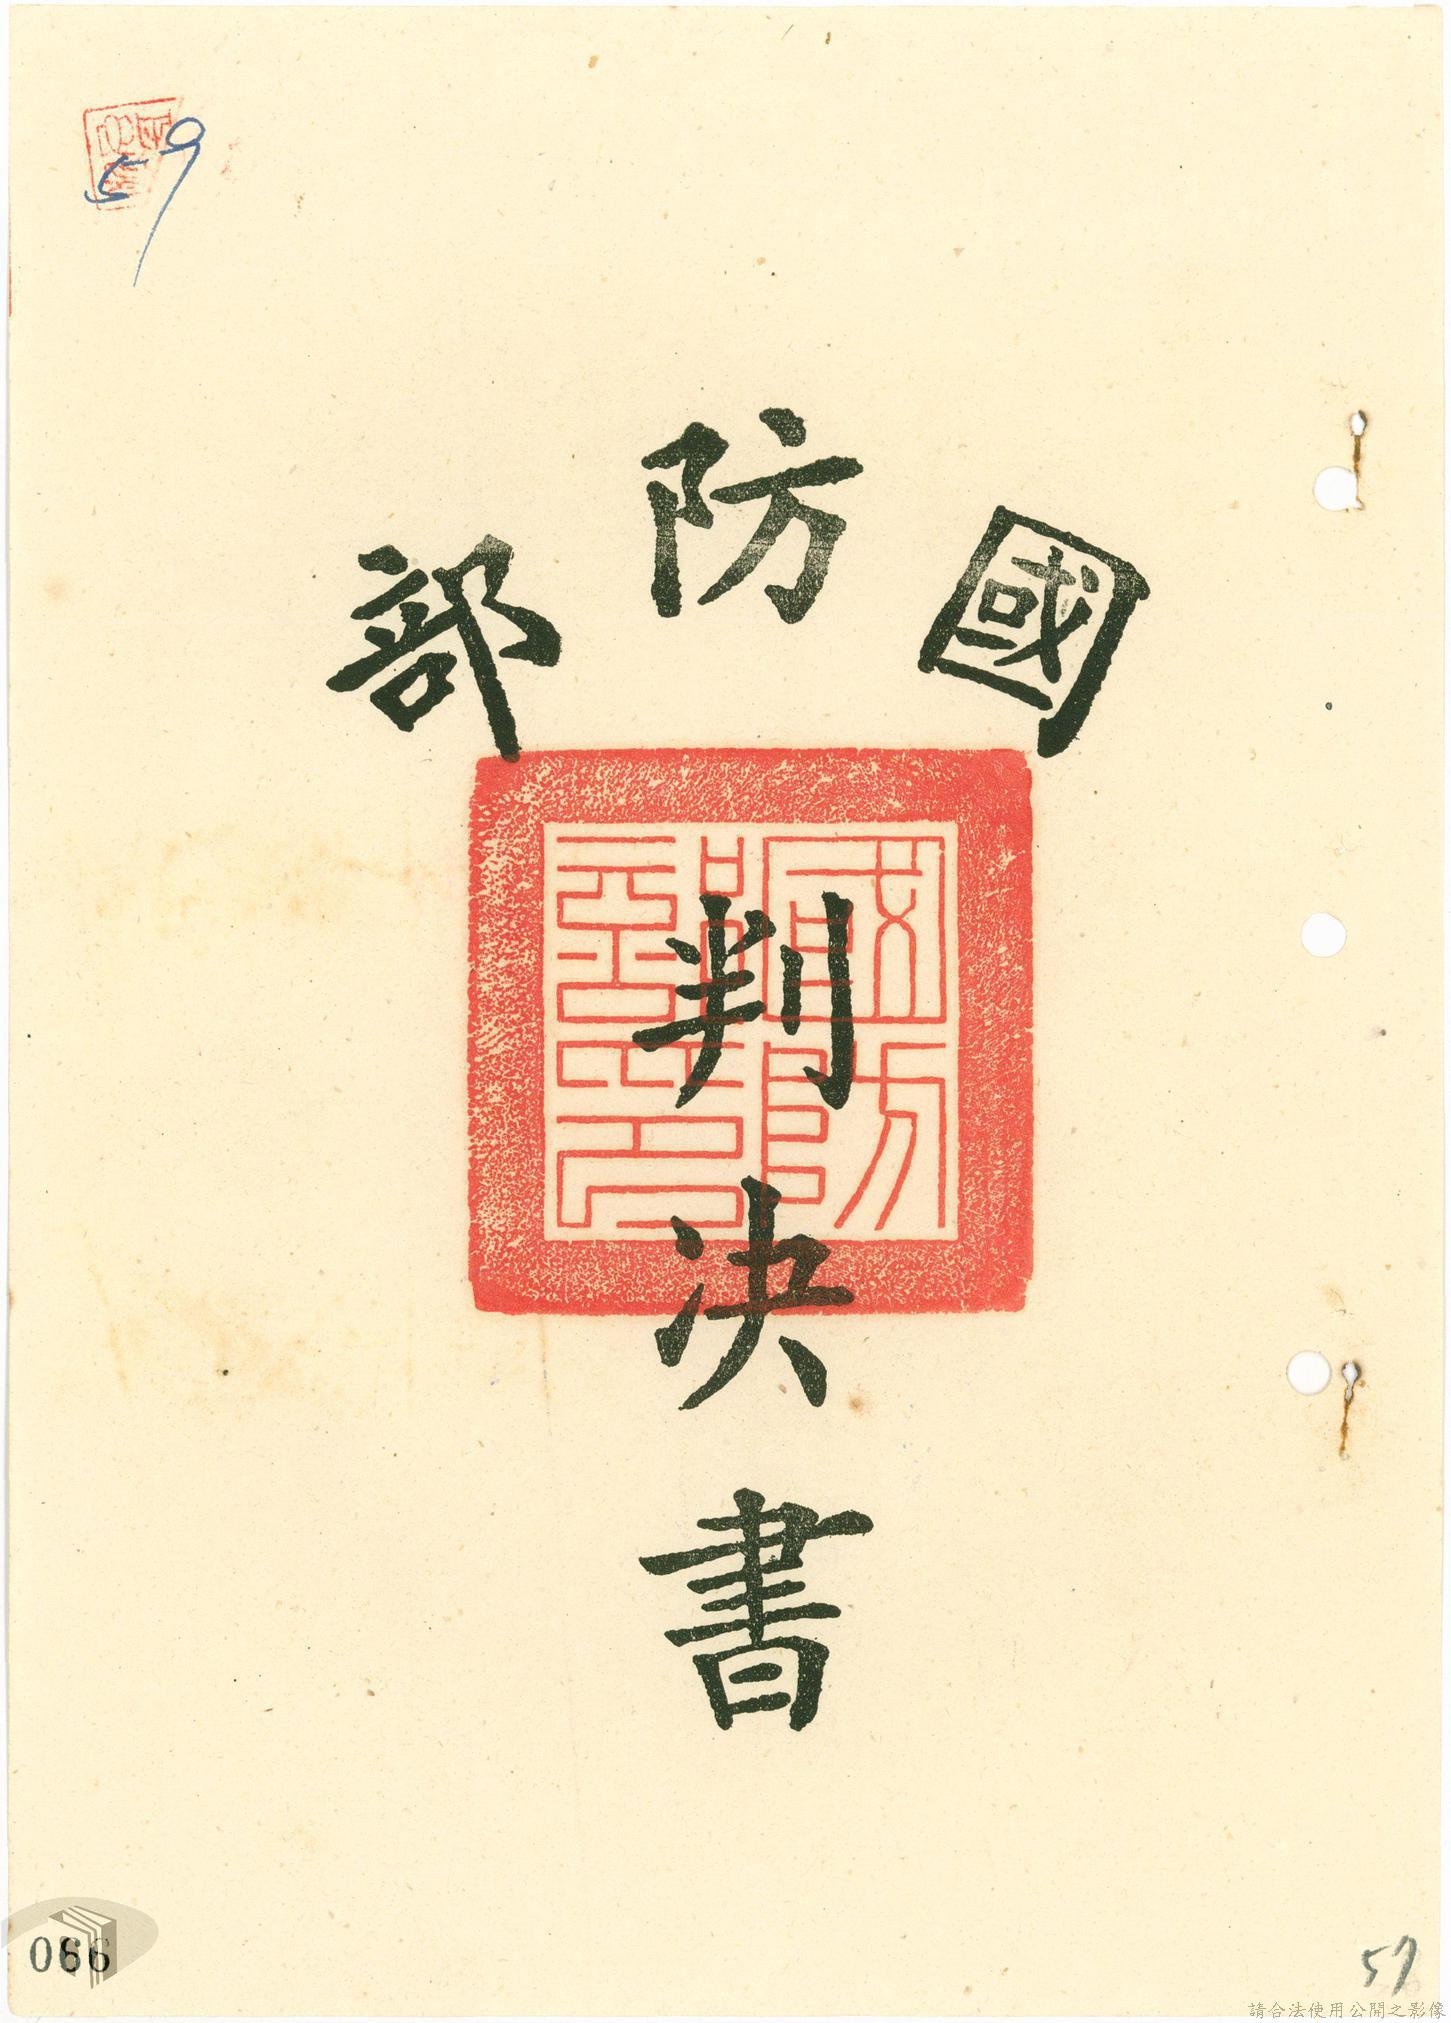 59
國防部
國防部印
判決書
066
57
請合法使用公開之影像